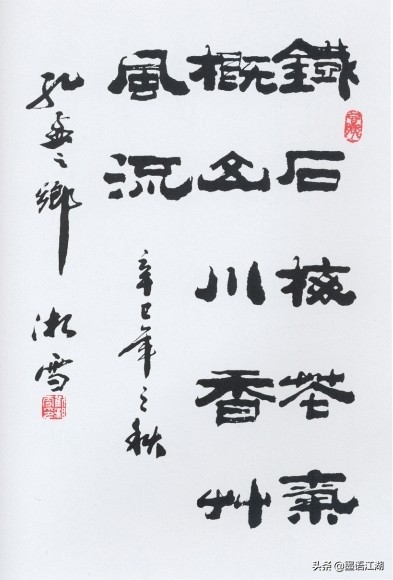 鐵石梅花氣
概山川香艸
風流
辛巳年之秋
孔孟之鄉 雪
头条 @墨语江湖